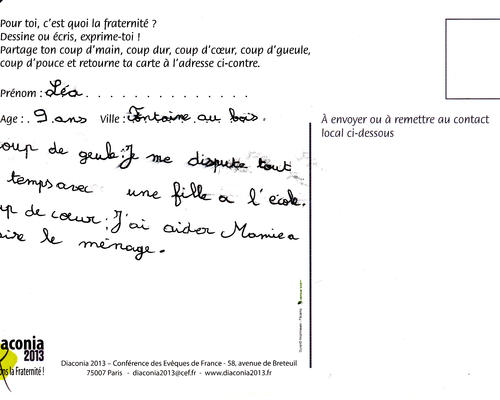 Pour toi, c'est quoi la fraternité ?
Dessine ou écris, exprime-toi !
Partage ton coup d'main, coup dur, coup d'cœur, coup d'gueule,
coup d'pouce et retourne ta carte à l'adresse ci-contre.
Prénom : Léa . . . . . . . . . . . . . .
Age : . 9 ans Ville : Fontaine au bois .
À envoyer ou à remettre au contact
local ci-dessous
oup de geule : Je me dispute tout
temps avec une fille a l'école.
up de cœur : J'ai aider Mamie a
ire le ménage.
aconia
2013
ns la Fraternité !
Diaconia 2013 – Conférence des Evêques de France - 58, avenue de Breteuil
75007 Paris - diaconia2013@cef.fr - www.diaconia2013.fr